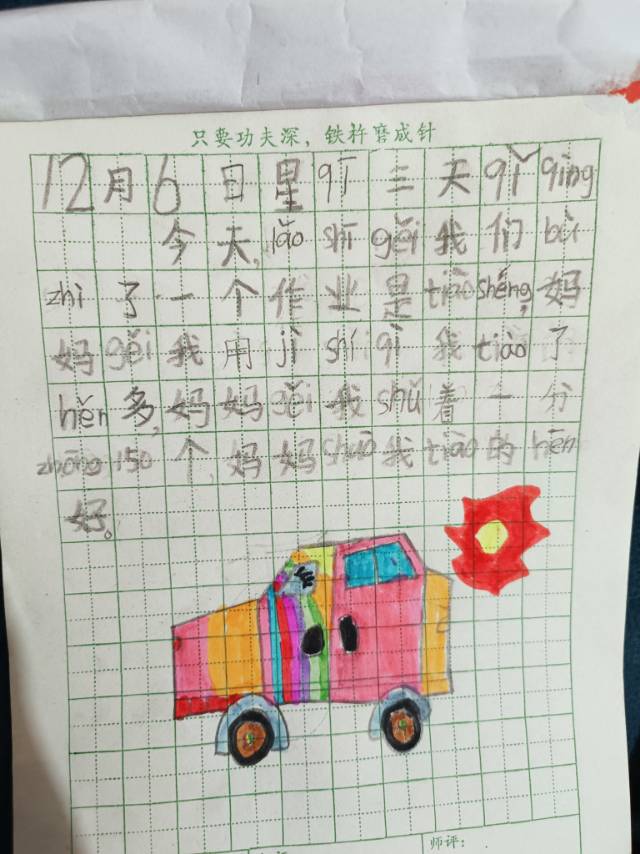 只要功夫深，铁杵磨成针
12月6日星qī三天qì qíng
今天,lǎo shī gěi我们bù
zhì了一个作业是tiào shéng,妈
妈gěi我用jì shí qì我tiào了
hěn多,妈妈gěi我shǔ着一分
zhōng 150个,妈妈shuō我tiào的hěn
好。
师评：